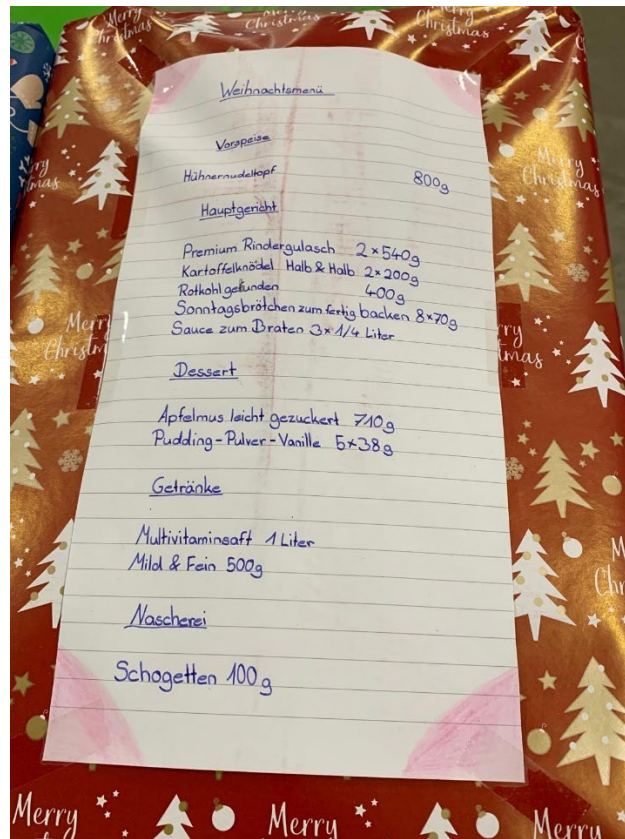 Merry Christmas
Christmas
Merry Christmas
Weihnachtsmenü
Vorspeise
Hühnernudeltopf 800g
Hauptgericht
Premium Rindergulasch 2×540g
Kartoffelknödel Halb & Halb 2×200g
Rotkohl 400g
Sonntagsbrötchen zum fertig backen 8×70g
Sauce zum Braten 3×1/4 Liter
Dessert
Apfelmus leicht gezuckert 710g
Pudding-Pulver-Vanille 5×38g
Getränke
Multivitaminsaft 1 Liter
Mild & Fein 500g
Nascherei
Schogetten 100g
Merry Christmas
Merry
Merry
Merry